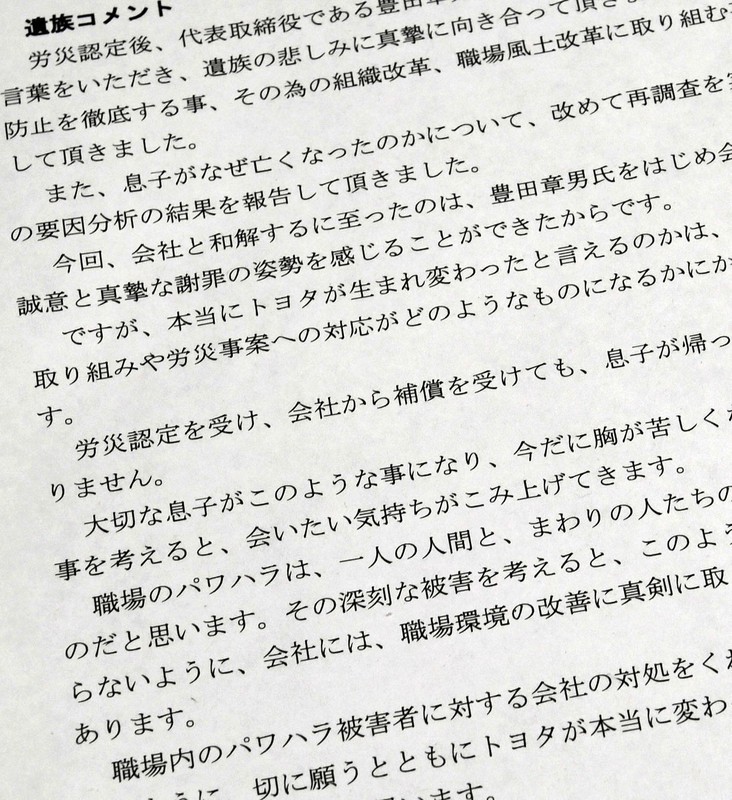 遺族コメント
労災認定後、代表取締役である豊田章
言葉をいただき、遺族の悲しみに真摯に向き合って頂き
防止を徹底する事、その為の組織改革、職場風土改革に取り組む
して頂きました。
また、息子がなぜ亡くなったのかについて、改めて再調査を
の要因分析の結果を報告して頂きました。
今回、会社と和解するに至ったのは、豊田章男氏をはじめ会
誠意と真摯な謝罪の姿勢を感じることができたからです。
ですが、本当にトヨタが生まれ変わったと言えるのかは、
取り組みや労災事案への対応がどのようなものになるかにか
す。
労災認定を受け、会社から補償を受けても、息子が帰っ
りません。
大切な息子がこのような事になり、今だに胸が苦しく
事を考えると、会いたい気持ちがこみ上げてきます。
職場のパワハラは、一人の人間と、まわりの人たちの
のだと思います。その深刻な被害を考えると、このよう
らないように、会社には、職場環境の改善に真剣に取
あります。
職場内のパワハラ被害者に対する会社の対処をく
ように、切に願うとともにトヨタが本当に変わ
います。